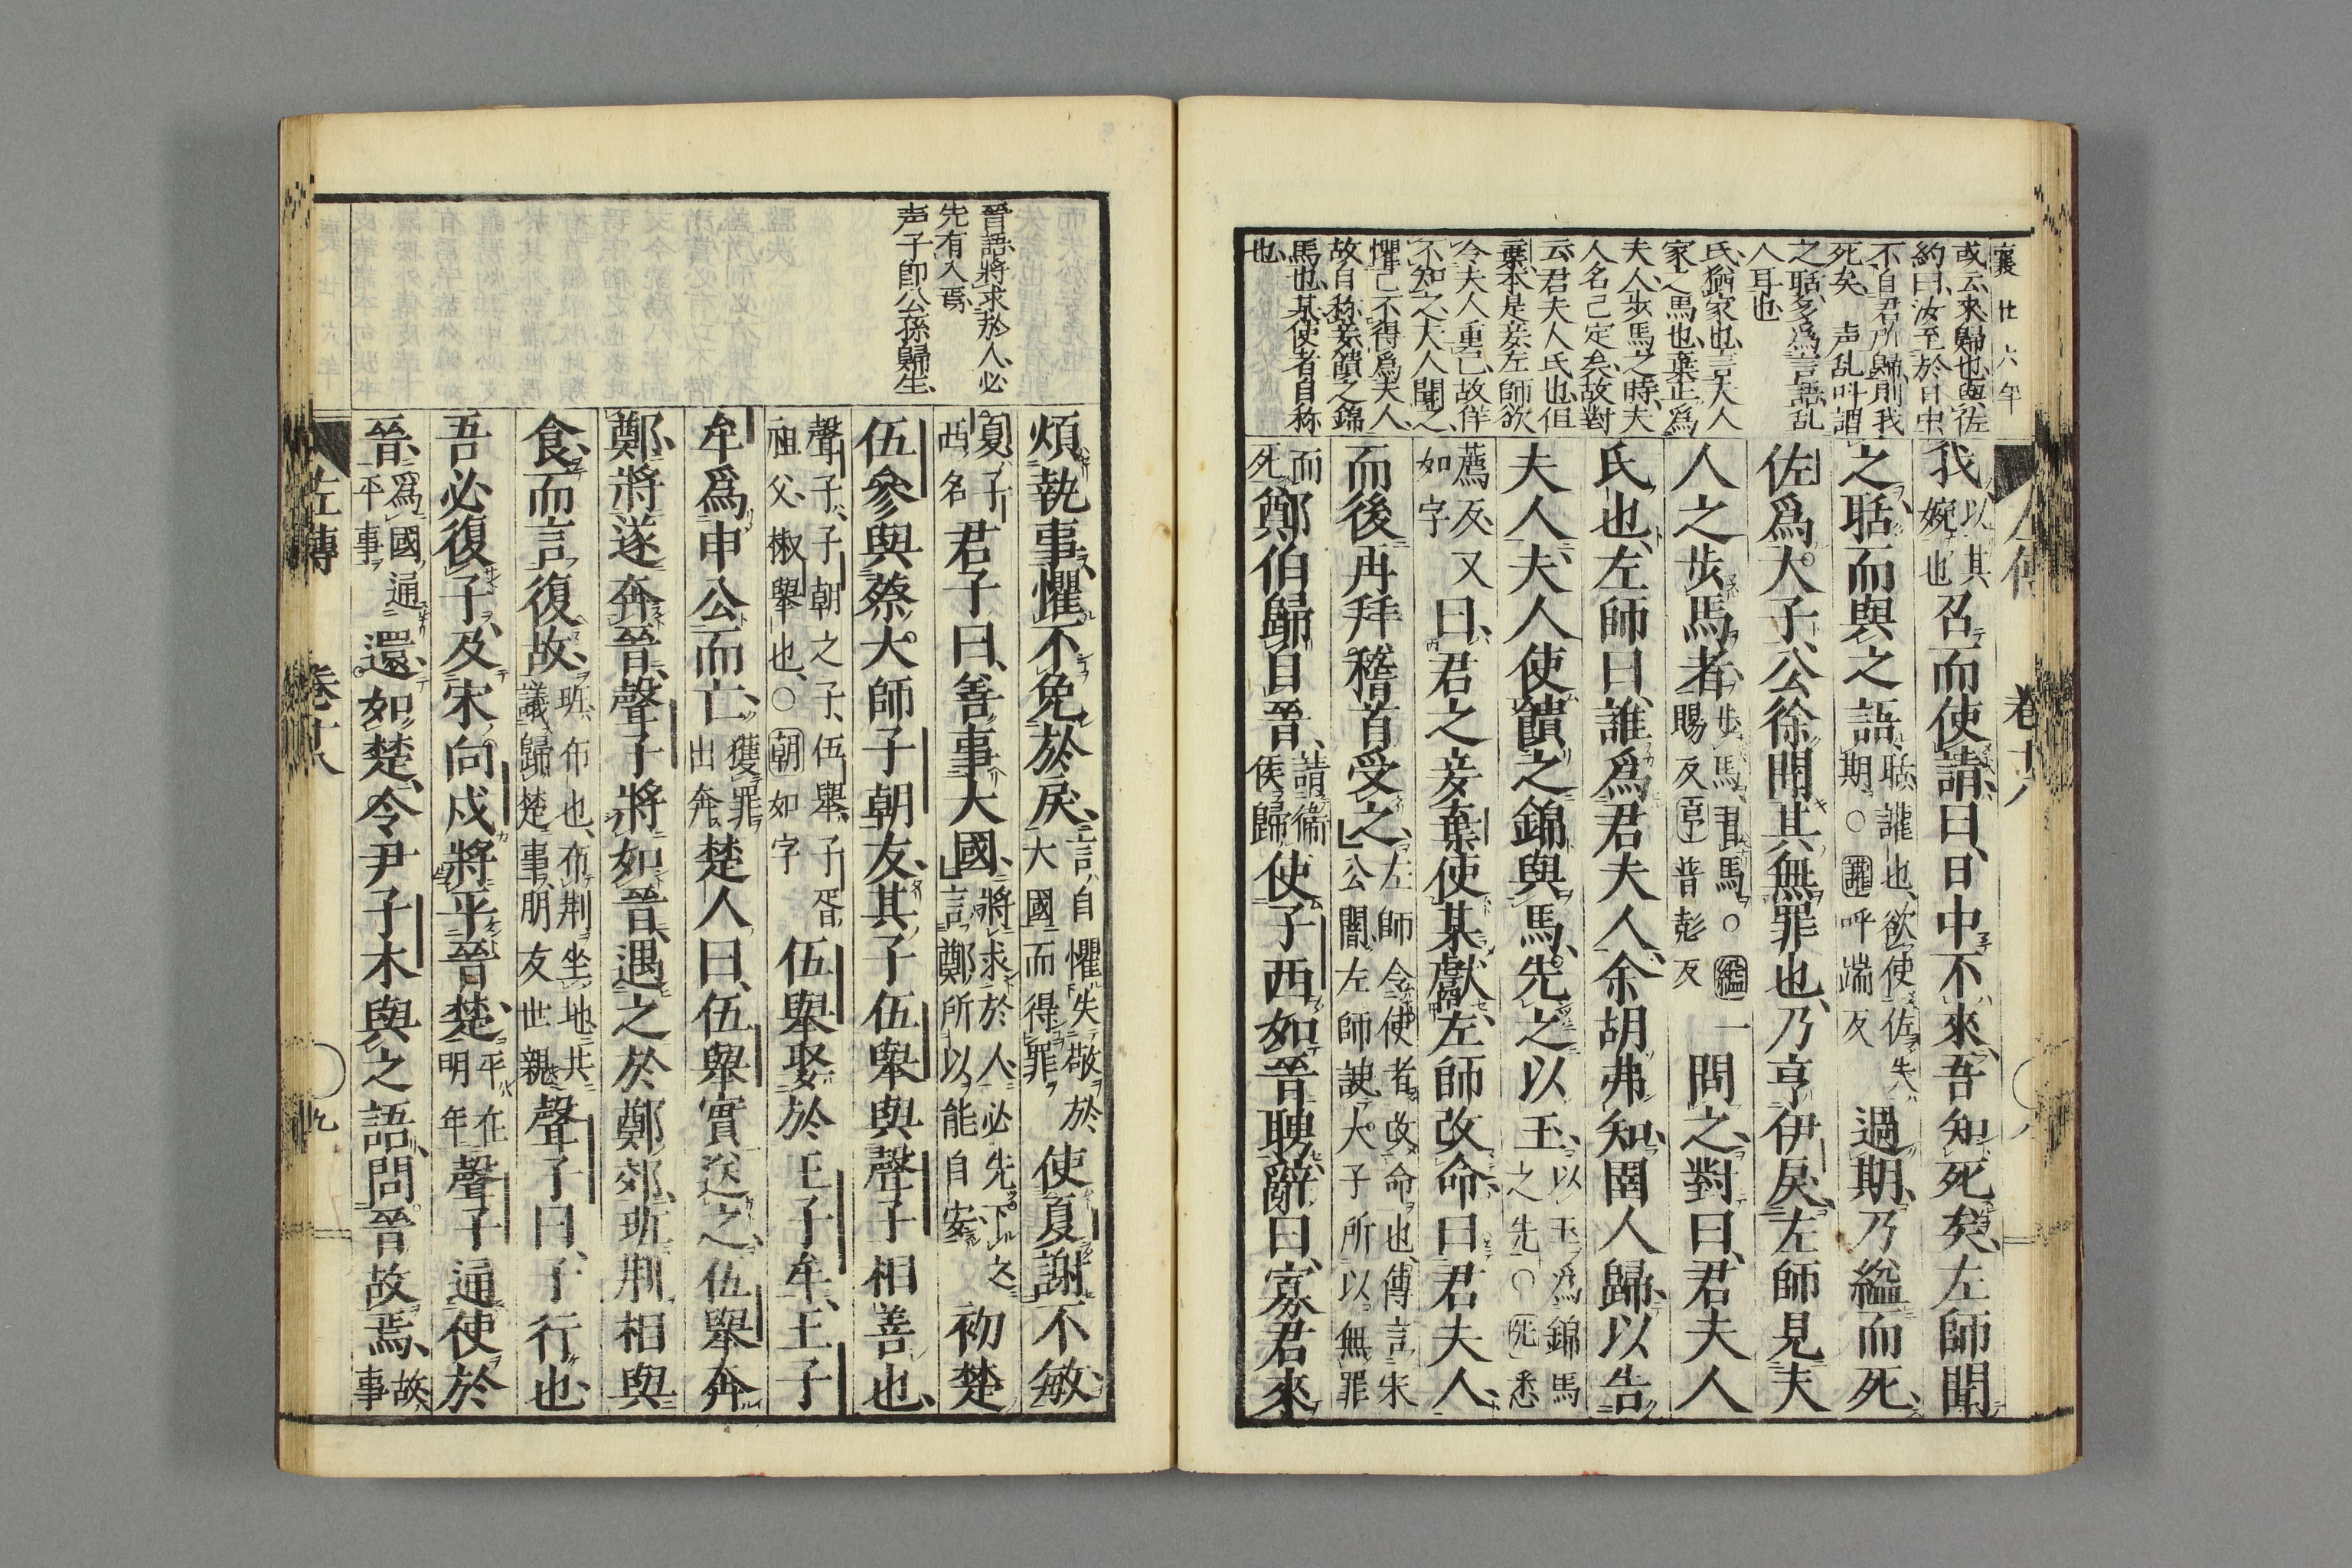 襄廿六年
或云、來歸也、與佐
約曰、汝至於日中
不自君所歸、則我
死矣、声乱叫謂
之聒、多爲言語乱
人耳也
氏、猶家也、言夫人
家之馬也、棄正爲
夫人、步馬之時、夫
人名已定矣、故對
云君夫人氏也、但
棄本是妾、左師欲
令夫人重己、故佯
不知之、夫人聞之、
懼己不得爲夫人、
故自称妾、饋之錦
馬也、某、使者自称
也
我以其婉也召而使請曰、日中不來、吾知死矣、左師聞
之、聒而與之語、聒、讙也、欲使佐失期○讙呼端反過期、乃縊而死、
佐爲大子、公徐聞其無罪也、乃亨伊戾、左師見夫
人之步馬者、步馬、習馬○縊一賜反亨普彭反問之、對曰、君夫人
氏也、左師曰、誰爲君夫人、余胡弗知、圉人歸、以告
夫人、夫人使饋之錦與馬、先之以玉、以玉爲錦馬之先○死悉
薦反、又如字曰、君之妾棄使某獻、左師改命曰、君夫人、
而後再拜稽首受之、左師令使者改命也、傳言宋公闇、左師諛、大子所以無罪
而死鄭伯歸自晉、請衞侯歸使子西如晉聘、辭曰、寡君來
左傳 卷十八 八
晉語、將求於人、必
先有入焉、
声子即公孫歸生、
煩執事、懼不免於戾、言自懼失敬於大國而得罪使夏謝不敏、
夏、子西名君子曰、善事大國、將求於人、必先下之、言鄭所以能自安初楚
伍參與蔡大師子朝友、其子伍舉與聲子相善也、
聲子、子朝之子、伍舉、子胥祖父、椒舉也、○朝如字伍舉娶於王子牟、王子
牟爲申公而亡、獲罪出奔楚人曰、伍舉實送之、伍舉奔
鄭、將遂奔晉、聲子將如晉、遇之於鄭郊、班荆相與
食、而言復故、班、布也、布荆坐地、共議歸楚事、朋友世親聲子曰、子行也、
吾必復子、及宋向戌將平晉楚、平在明年聲子通使於
晉、爲國通平事還如楚、令尹子木與之語、問晉故焉、故、事
左傳 卷十八 九